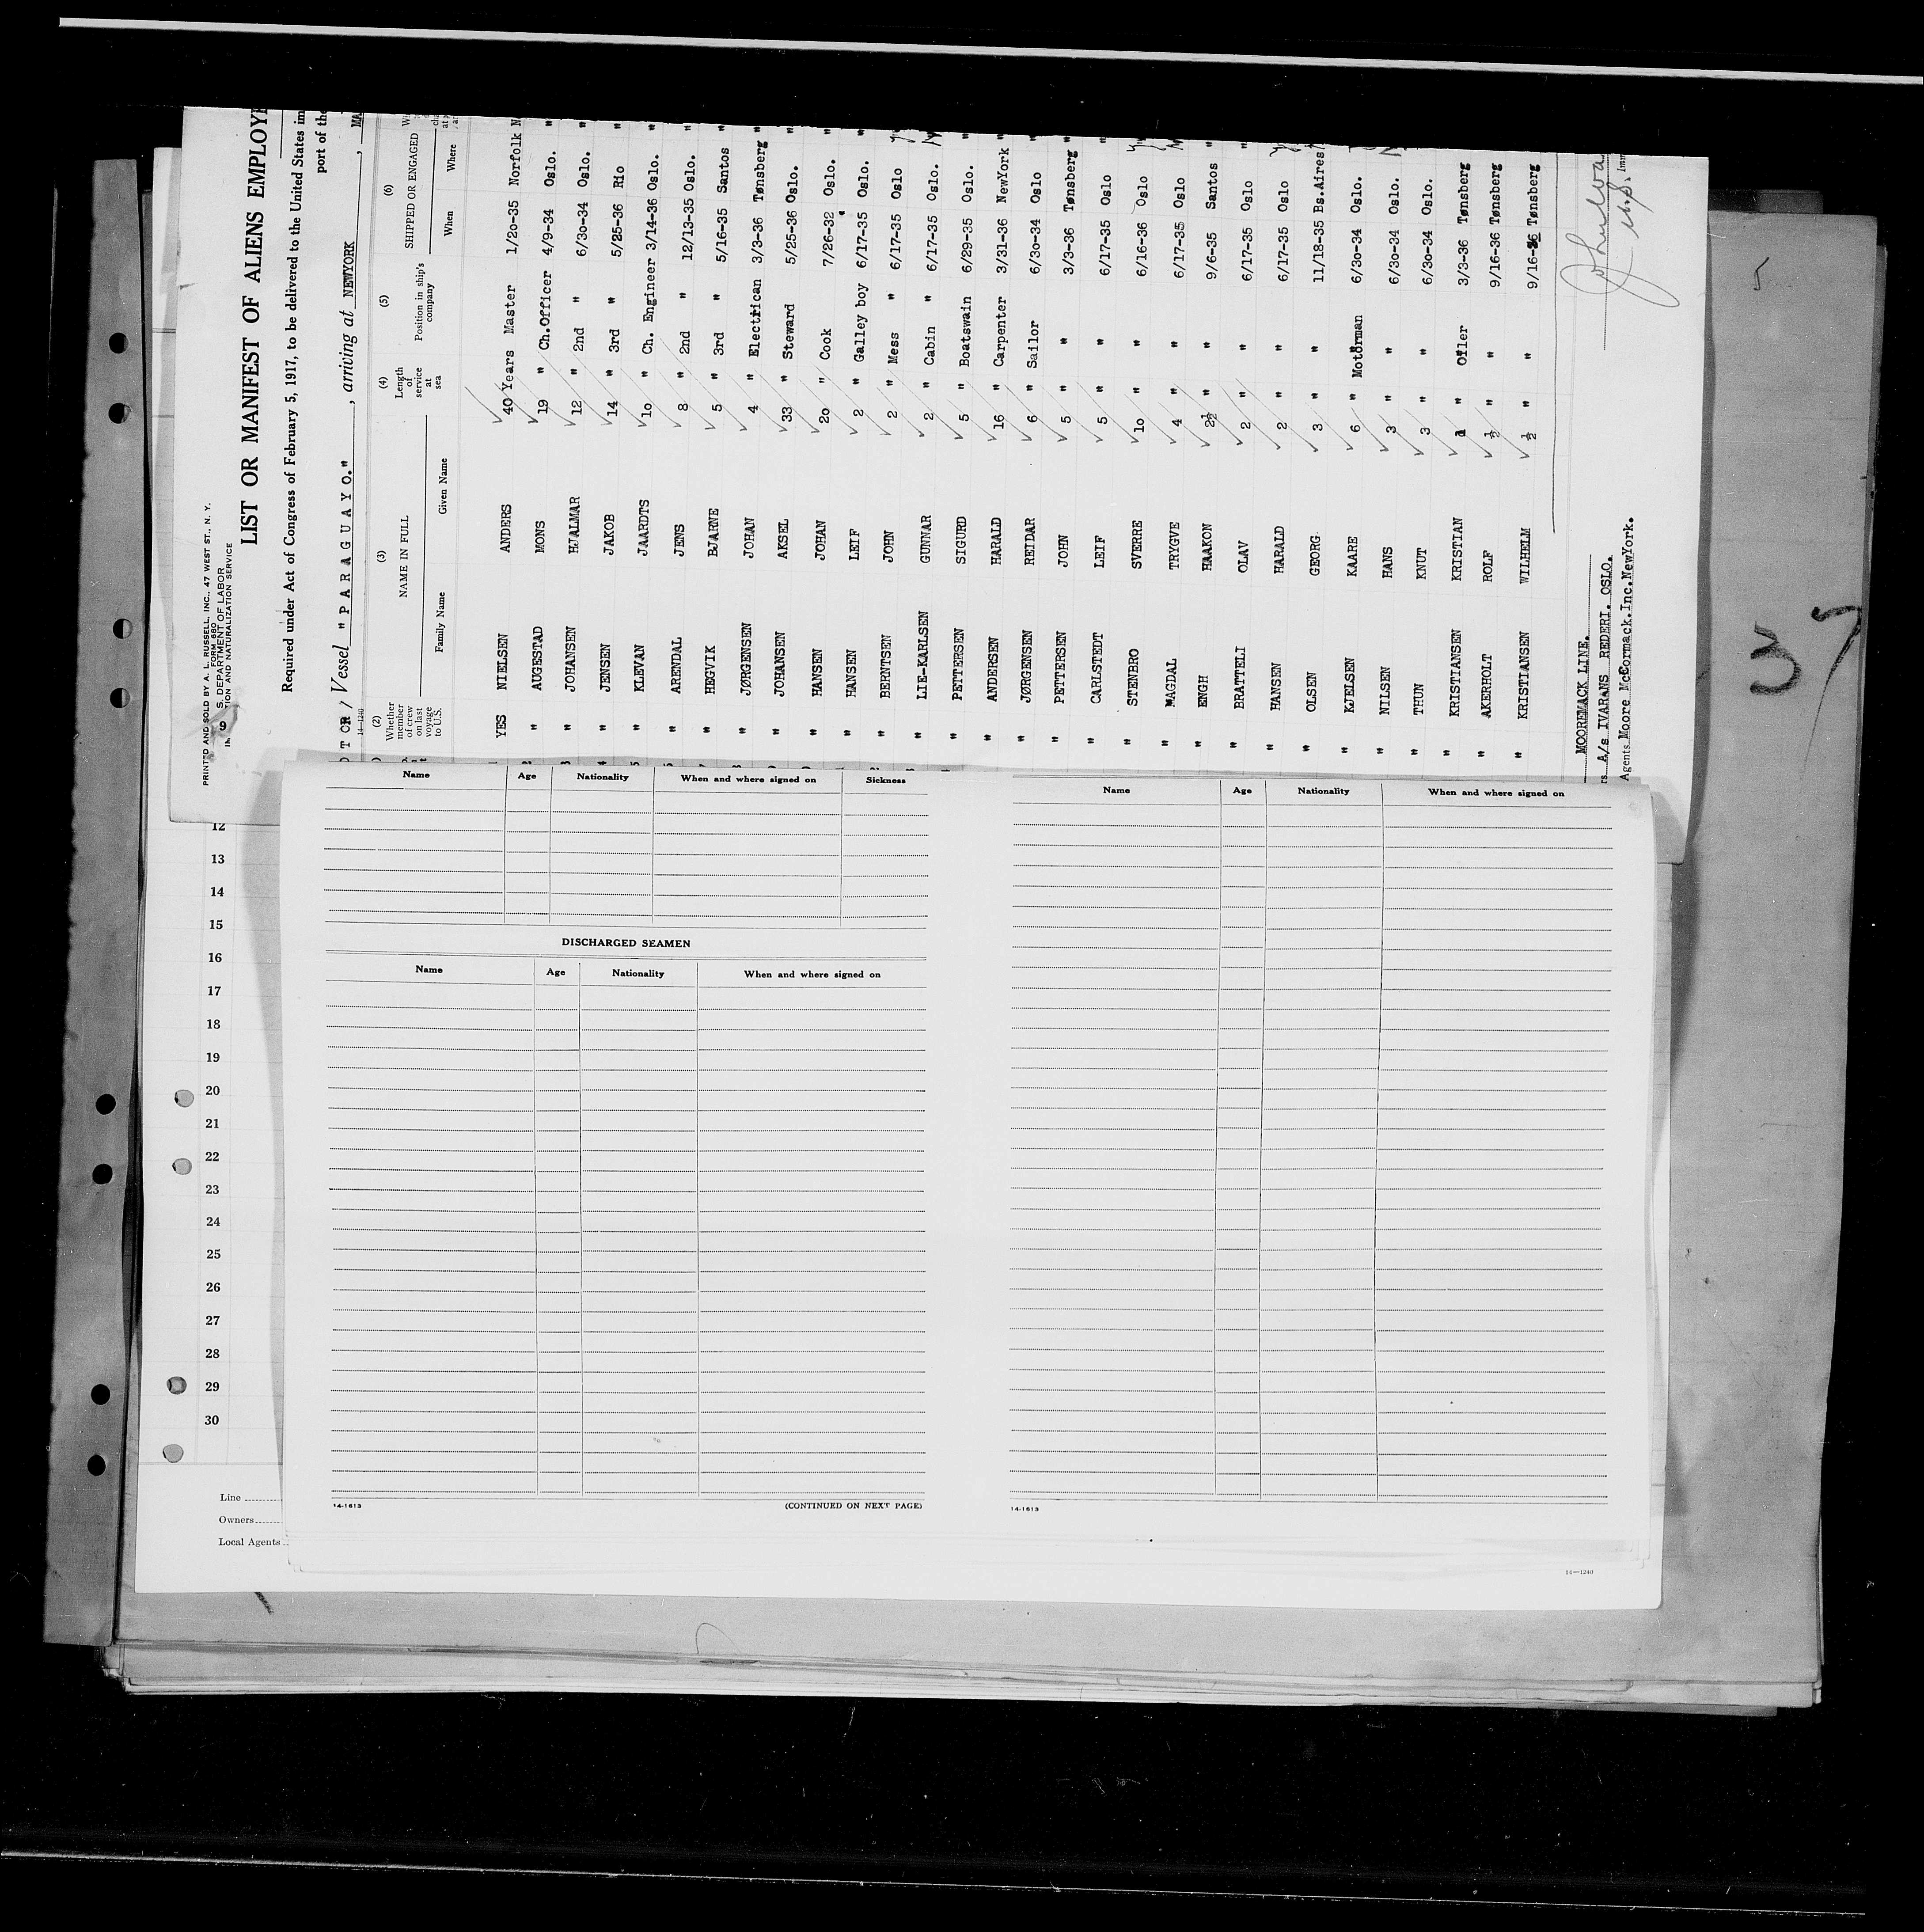 PRINTED AND SOLD BY A. L. RUSSELL, INC., 47 WEST ST., N. Y.
FORM 680
S. DEPARTMENT OF LABOR
TION AND NATURALIZATION SERVICE
9
LIST OR MANIFEST OF ALIENS EMPLOYE
Required under Act of Congress of February 5, 1917, to be delivered to the United States im
port of the
T OR / Vessel "PARAGUAYO.", arriving at NEWYORK, MA
14-1240
(2) (3) (4) (5) (6)
Whether member of crew on last voyage to U.S. NAME IN FULL Length of service at sea Position in ship's company SHIPPED OR ENGAGED
Family Name Given Name When Where
YES NIELSEN ANDERS 40 Years Master 1/20-35 Norfolk
" AUGESTAD MONS 19 " Ch.Officer 4/9-34 Oslo. "
" JOHANSEN HJALMAR 12 " 2nd " 6/30-34 Oslo. "
" JENSEN JAKOB 14 " 3rd " 5/25-36 Rio "
" KLEVAN JAARDTS 1o " Ch. Engineer 3/14-36 Oslo. "
" ARENDAL JENS 8 " 2nd " 12/13-35 Oslo. "
" HEGVIK BJARNE 5 " 3rd " 5/16-35 Santos "
" JØRGENSEN JOHAN 4 " Electrican 3/3-36 Tønsberg "
" JOHANSEN AKSEL 33 " Steward 5/25-36 Oslo. "
" HANSEN JOHAN 2o " Cook 7/26-32 Oslo. "
" HANSEN LEIF 2 " Galley boy 6/17-35 Oslo. "
" BERNTSEN JOHN 2 " Mess " 6/17-35 Oslo
" LIE-KARLSEN GUNNAR 2 " Cabin " 6/17-35 Oslo. "
" PETTERSEN SIGURD 5 " Boatswain 6/29-35 Oslo. "
" ANDERSEN HARALD 16 " Carpenter 3/31-36 NewYork "
" JØRGENSEN REIDAR 6 " Sailor 6/3o-34 Oslo "
" PETTERSEN JOHN 5 " " 3/3-36 Tønsberg "
" CARLSTEDT LEIF 5 " " 6/17-35 Oslo "
" STENBRO SVERRE 1o " " 6/16-36 Oslo "
" MAGDAL TRYGVE 4 " " 6/17-35 Oslo
" ENGH HAAKON 2½ " " 9/6-35 Santos "
" BRATTELI OLAV 2 " " 6/17-35 Oslo "
" HANSEN HARALD 2 " " 6/17-35 Oslo
" OLSEN GEORG. 3 " " 11/18-35 Bs.Aires
" KJELSEN KAARE 6 " Motorman 6/3o-34 Oslo.
" NILSEN HANS 3 " " 6/3o-34 Oslo.
" THUN KNUT 3 " " 6/3o-34 Oslo.
" KRISTIANSEN KRISTIAN 1 " Oiler 3/3-36 Tønsberg
" AKERHOLT ROLF ½ " " 9/16-36 Tønsberg
" KRISTIANSEN WILHELM ½ " " 9/16-36 Tønsberg
MOOREMACK LINE.
rs A/s IVARANS REDERI. OSLO.
Agents Moore McCormack.Inc.NewYork.
37
12
13
14
15
16
17
18
19
20
21
22
23
24
25
26
27
28
29
30
Line
Owners
Local Agents
Name Age Nationality When and where signed on Sickness
DISCHARGED SEAMEN
Name Age Nationality When and where signed on
14-1613 (CONTINUED ON NEXT PAGE)
Name Age Nationality When and where signed on
14-1613
14—1240